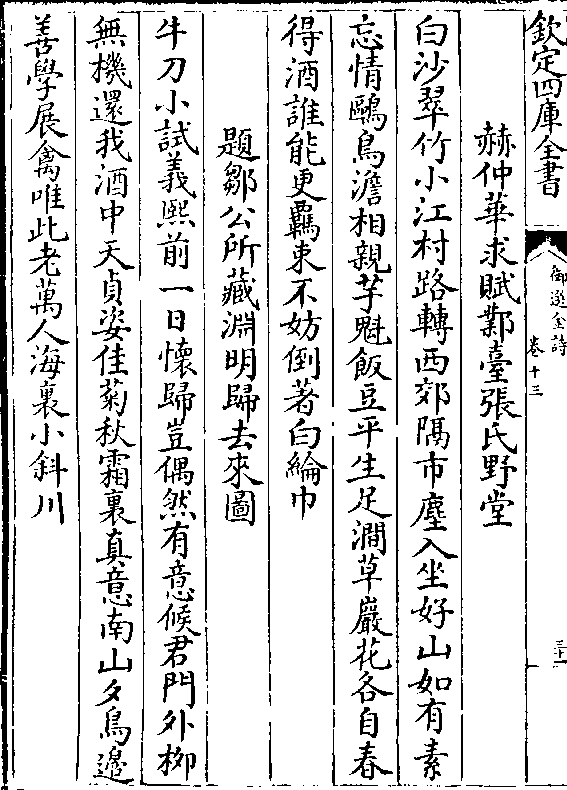 欽定四庫全書
御選金詩
卷十三
三十一
赫仲華求賦鄴臺張氏野堂
白沙翠竹小江村路轉西郊隔市塵入坐好山如有素
忘情鷗鳥澹相親芋魁飯豆平生足澗草巖花各自春
得酒誰能更羈束不妨倒著白綸巾
題鄒公所藏淵明歸去來圖
牛刀小試義熙前一日懷歸豈偶然有意候君門外栁
無機還我酒中天貞姿佳菊秋霜裏真意南山夕鳥邊
善學展禽唯此老萬人海裏小斜川